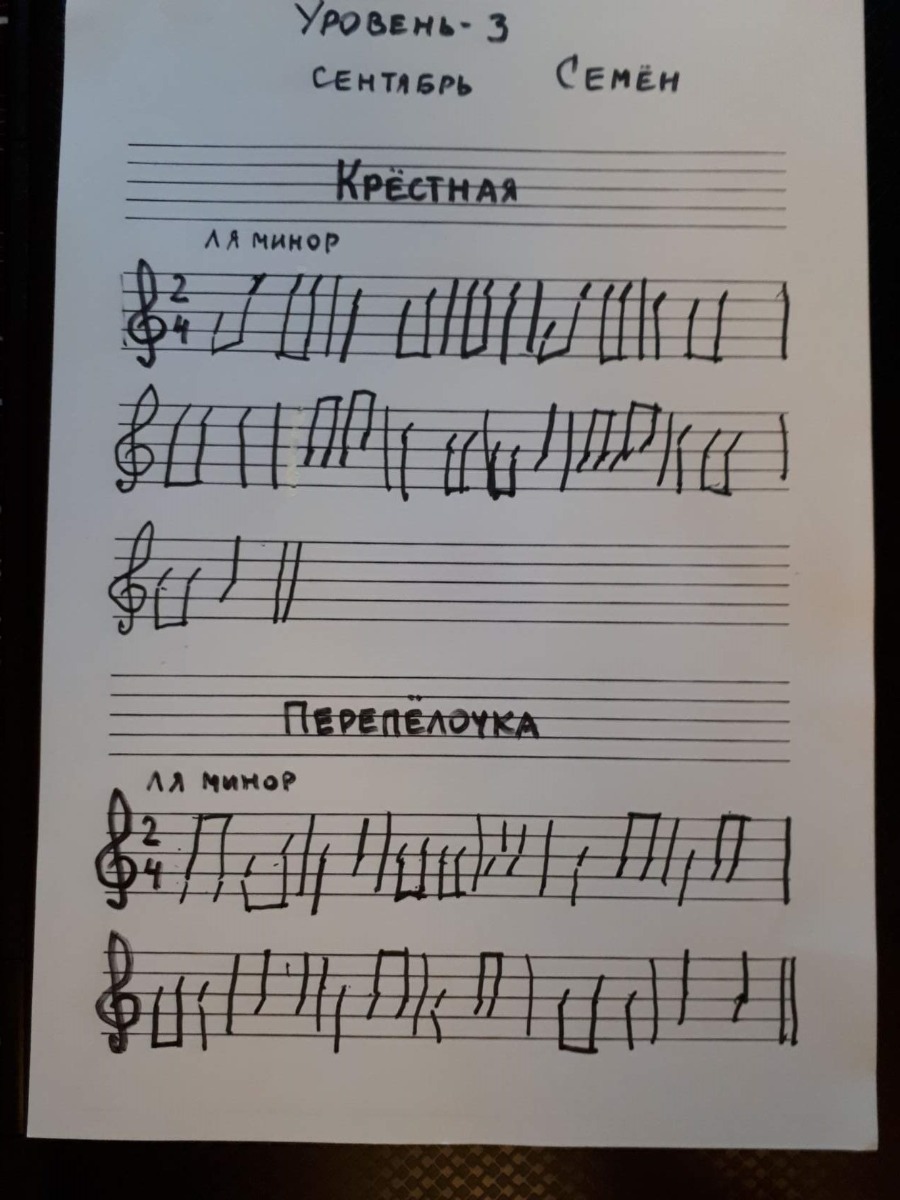 УРОВЕНЬ-3
СЕНТЯБРЬ СЕМЁН
КРЁСТНАЯ
ЛЯ МИНОР
2
4
ПЕРЕПЁЛОЧКА
ЛЯ МИНОР
2
4